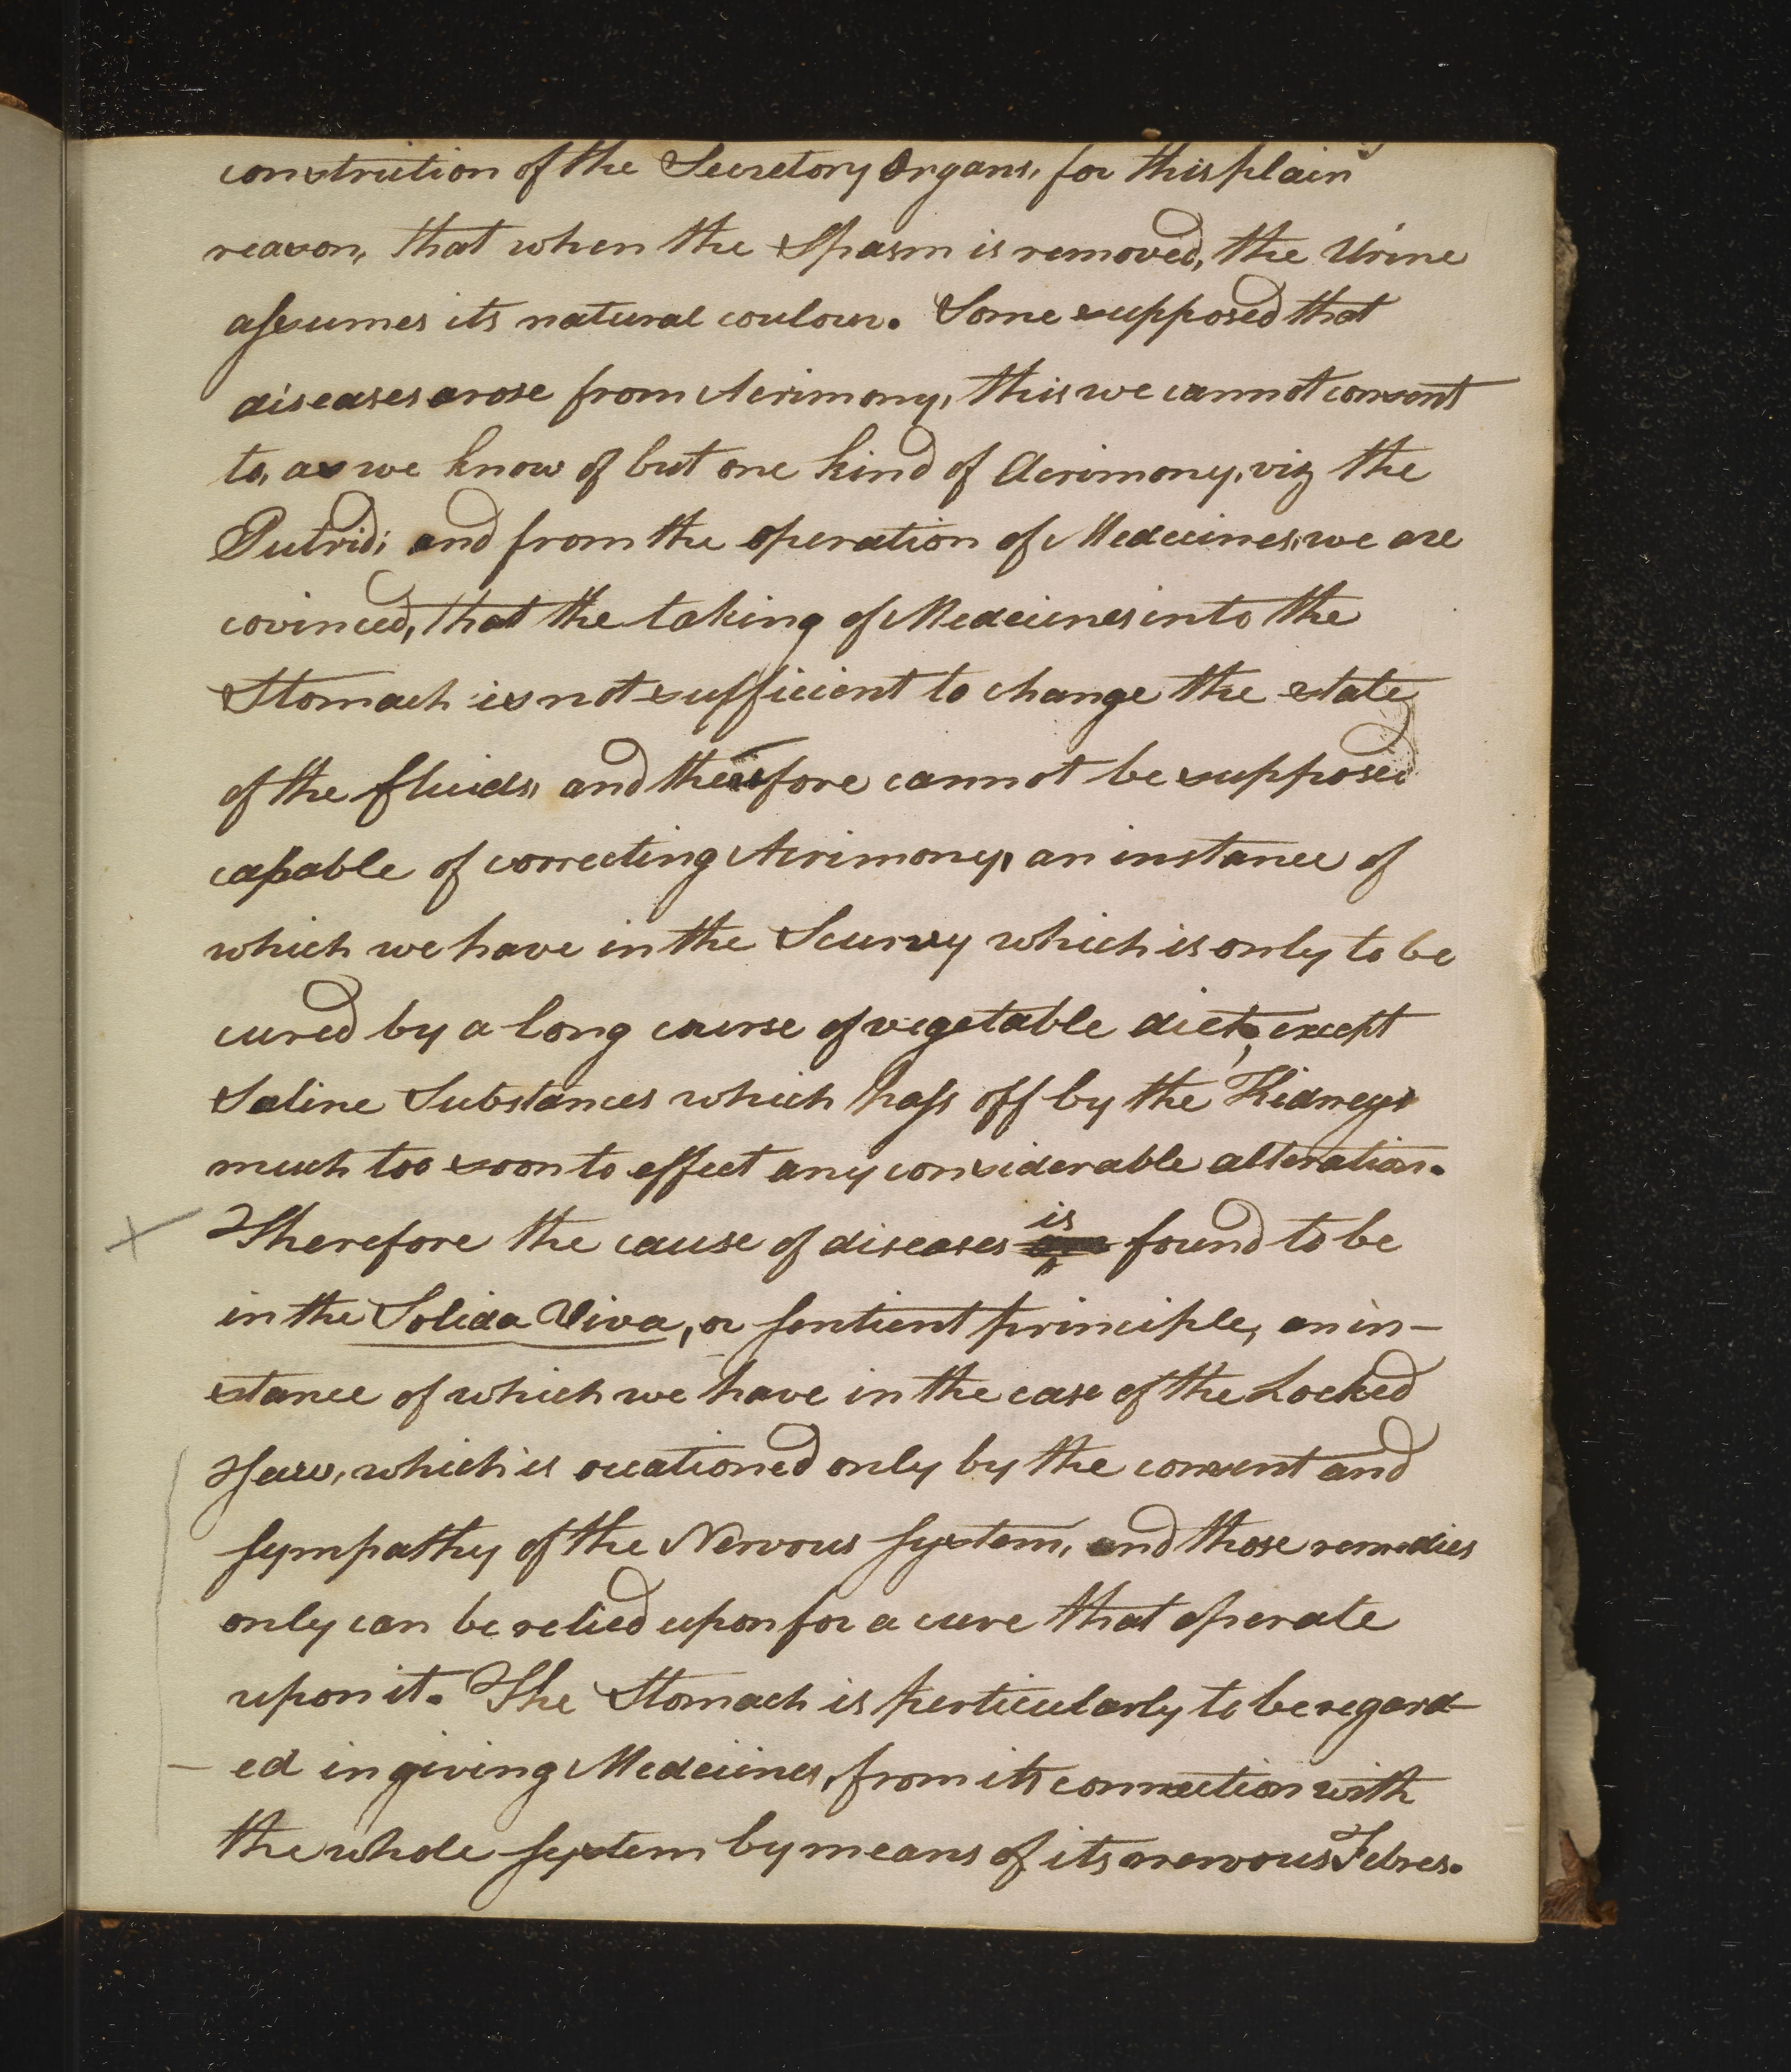 constriction of the Secretory Organs, for this plain
reason, that when the Spasm is removed, the Urine
assumes its natural coulour. Some supposed that
diseases arose from Acrimony, this we cannot consent
to, as we know of but one kind of Acrimony, viz the
Putrid; and from the operation of Medecines, we are
covinced, that the taking of Medecines into the
Stomach is not sufficient to change the state
of the fluids, and therefore cannot be supposed
capable of correcting Acrimony, an instance of
which we have in the Scurvy which is only to be
cured by a long course of vegetable diet, except
Saline Substances which pass off by the Kidneys
much too soon to effect any considerable alteration.
Therefore the cause of diseases is found to be
in the Solida Viva, or sentient principle, an in-
stance of which we have in the case of the Locked
Jaw, which is occationed only by the consent and
sympathy of the Nervous system, and those remedies
only can be relied upon for a cure that operate
upon it. The Stomach is perticularly to be regard-
-ed in giving Medecines, from its connection with
the whole system by means of its nervous Febres.